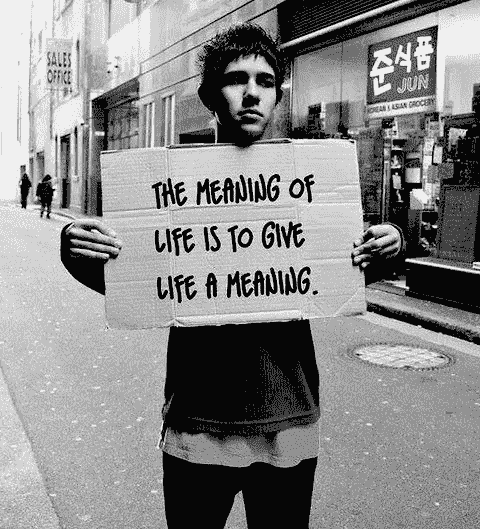 SALES
OFFICE
준식품
JUN
KOREAN & ASIAN GROCERY
THE MEANING OF
LIFE IS TO GIVE
LIFE A MEANING.